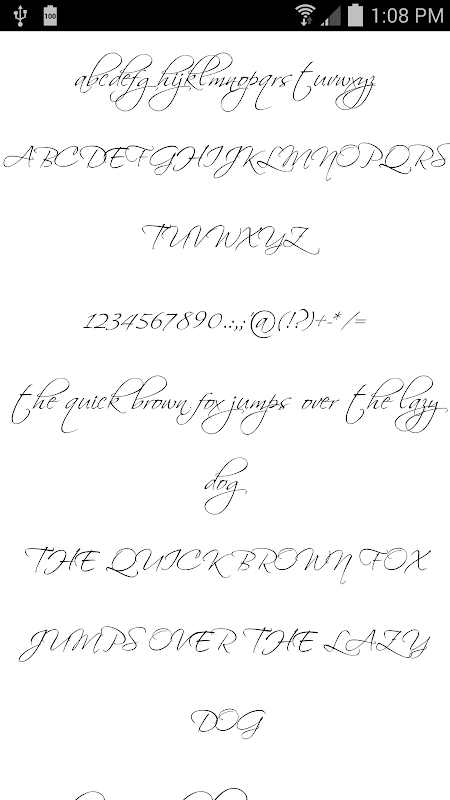 100 1:08 PM
abcdefg hijklmnopqrs tuvwxyz
ABCDEFGHIJKLMNOPQRS
TUVWXYZ
1234567890.:,;'@(!?)+-*/=
the quick brown fox jumps over the lazy
dog
THE QUICK BROWN FOX
JUMPS OVER THE LAZY
DOG